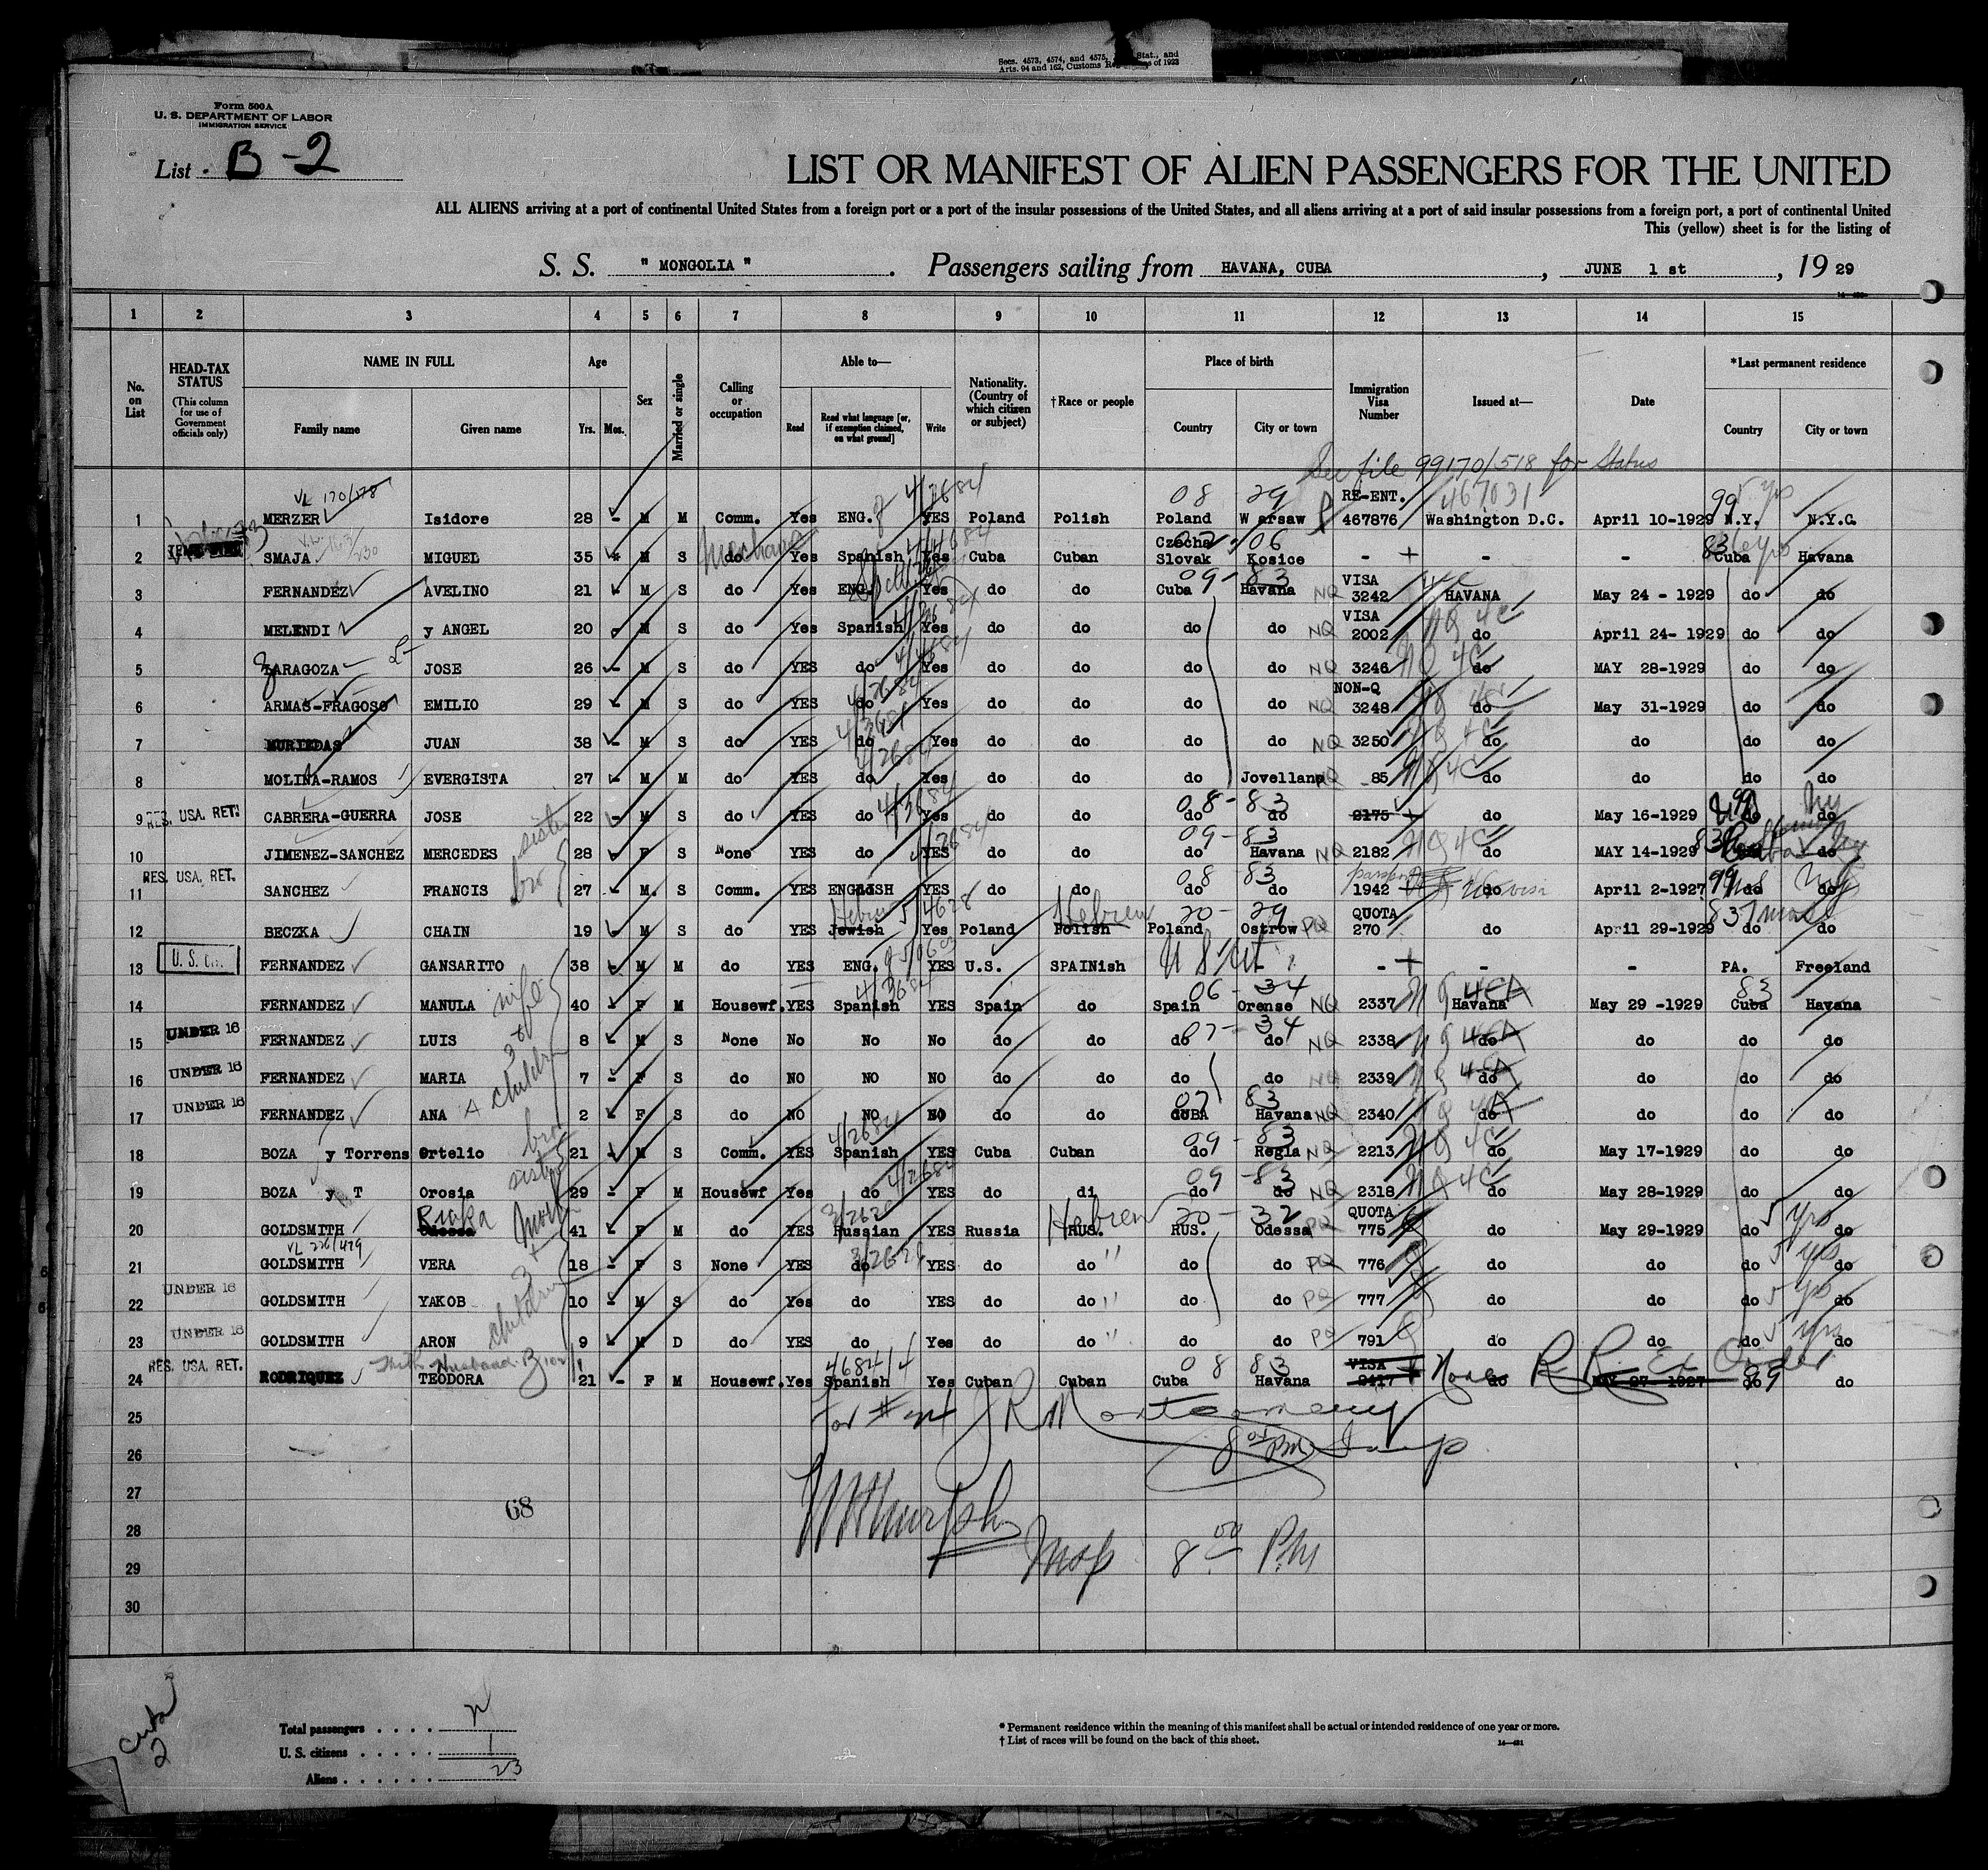 Secs. 4573, 4574, and 4575, Stat., and
Arts. 94 and 162, Customs Reg of 1923
Form 500 A
U. S. DEPARTMENT OF LABOR
IMMIGRATION SERVICE
List B-2
LIST OR MANIFEST OF ALIEN PASSENGERS FOR THE UNITED
ALL ALIENS arriving at a port of continental United States from a foreign port or a port of the insular possessions of the United States, and all aliens arriving at a port of said insular possessions from a foreign port, a port of continental United
This (yellow) sheet is for the listing of
S. S. " MONGOLIA " . Passengers sailing from HAVANA, CUBA , JUNE 1 st , 19 29
1 2 3 4 5 6 7 8 9 10 11 12 13 14 15
No. on List
HEAD-TAX STATUS (This column for use of Government officials only)
NAME IN FULL
Family name Given name
Age
Yrs. Mos.
Sex
Married or single
Calling or occupation
Able to—
Read Read what language [or, if exemption claimed, on what ground] Write
Nationality. (Country of which citizen or subject)
† Race or people
Place of birth
Country City or town
Immigration Visa Number
Issued at—
Date
* Last permanent residence
Country City or town
See file 99170/518 for Status
VL 170/178 4/2684 08 29 RE-ENT. 467031 99 5 yrs
1 MERZER Isidore 28 - M M Comm. Yes ENG. YES Poland Polish Poland Warsaw 467876 Washington D.C. April 10-1929 N.Y. N.Y.C.
2 SMAJA MIGUEL 35 M S do Yes Spanish Yes Cuba Cuban Czecho Slovak Kosice - - - Cuba Havana
09-83 VISA
3 FERNANDEZ AVELINO 21 M S do Yes ENG. Yes do do Cuba Havana NQ 3242 HAVANA May 24 - 1929 do do
VISA
4 MELENDI y ANGEL 20 M S do Yes Spanish Yes do do do do NQ 2002 NQ 4C do April 24- 1929 do do
5 TARAGOZA JOSE 26 - M S do YES do Yes do do do do NQ 3246 NQ 4C do MAY 28-1929 do do
NON-Q
6 ARMAS-FRAGOSO EMILIO 29 - M S do YES do Yes do do do do NQ 3248 do May 31-1929 do do
7 MURIEDAS JUAN 38 - M S do YES do Yes do do do do NQ 3250 NQ 4C do do do do
8 MOLINA-RAMOS EVERGISTA 27 - M M do YES do Yes do do do Jovellano NQ 85 NQ 4C do do do do
08-83
9 RES. USA. RET. CABRERA-GUERRA JOSE 22 - M S do YES do Yes do do do do 2175 do May 16-1929 do do
sister 09-83
10 JIMENEZ-SANCHEZ MERCEDES 28 F S None YES do YES do do do Havana NQ 2182 NQ 4C do MAY 14-1929 do
bro 08 83
11 RES. USA. RET. SANCHEZ FRANCIS 27 - M. S Comm. YES ENGLISH YES do do do do 1942 do April 2-1927 do do
Hebrew 5/4628 Hebrew 20-29 QUOTA
12 BECZKA CHAIN 19 - M S do YES Jewish Yes Poland Polish Poland Ostrow PQ 270 do April 29-1929 do do
13 U. S. Cit. FERNANDEZ GANSARITO 38 - M M do YES ENG. YES U.S. SPAINish U S Cit - - - PA. Freeland
wife 06-34 83
14 FERNANDEZ MANULA 40 - F M Housewf. YES Spanish YES Spain do Spain Orense NQ 2337 Havana May 29 -1929 Cuba Havana
07-34
15 UNDER 16 FERNANDEZ LUIS 8 - M S None No No No do do do do NQ 2338 do do do do
3 children
16 UNDER 16 FERNANDEZ MARIA 7 - F S do NO NO NO do do do do NQ 2339 do do do do
07 83
17 UNDER 16 FERNANDEZ ANA 2 F S do NO NO NO do do CUBA Havana NQ 2340 do do do do
bro 4/2684 09-83
18 BOZA y Torrens Ortelio 21 - M S Comm. YES Spanish YES Cuba Cuban do Regla NQ 2213 NQ 4C do May 17-1929 do do
sister 4/2684 09-83
19 BOZA y T Orosia 29 - F M Housewf Yes do YES do di do do NQ 2318 NQ 4C do May 28-1929 do do
Hebrew 20-32 QUOTA 5 yrs
20 GOLDSMITH Odessa 41 - F M do YES Russian YES Russia RUS. RUS. Odessa PQ 775 do May 29-1929 do do
VL 276/479 3/2628 5 yrs
21 GOLDSMITH VERA 18 - F S None YES do YES do do " do do PQ 776 do do do do
children 5 yrs
22 UNDER 16 GOLDSMITH YAKOB 10 - M S do Yes do YES do do " do do PQ 777 do do do do
5 yrs
23 UNDER 16 GOLDSMITH ARON 9 M D do YES do Yes do do " do do PQ 791 do do do do
With Husband 08 83 VISA
24 RES. USA. RET. RODRIQUEZ TEODORA 21 - F M Housewf. Yes Spanish Yes Cuban Cuban Cuba Havana 2417 None do MAY 27- 1927 do do
25 For #24 J R Montgomery
26 8 00 PM Insp
27
28 Murphy
29 Insp 8 00 PM
30
68
Cuba 2
Total passengers
U. S. citizens 1
Aliens 23
* Permanent residence within the meaning of this manifest shall be actual or intended residence of one year or more.
† List of races will be found on the back of this sheet.